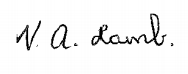 N. A. Lamb.